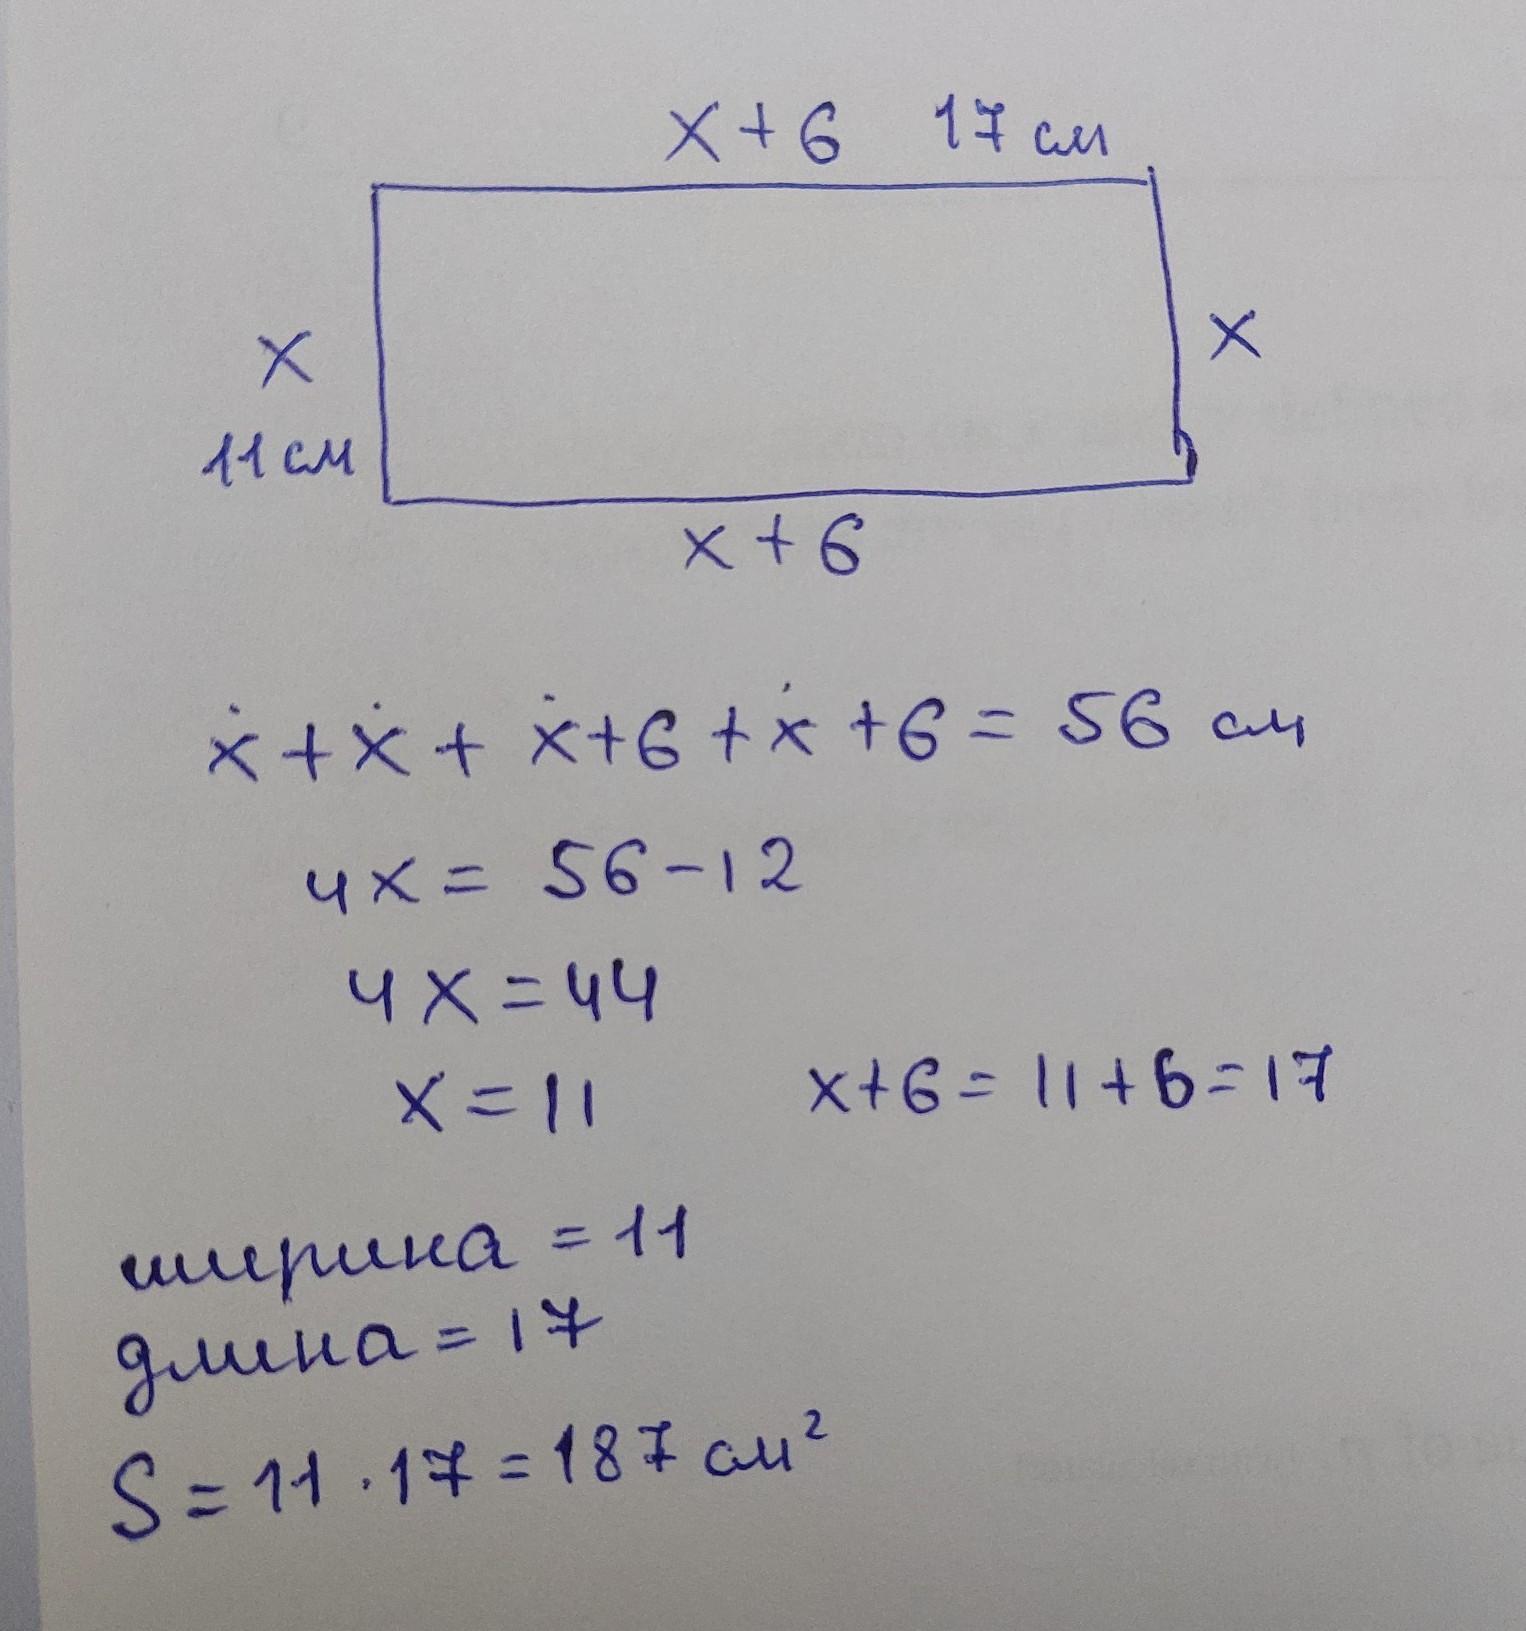 x + 6 17 см
x x
11 см
x + 6
x + x + x + 6 + x + 6 = 56 см
4x = 56 - 12
4x = 44
x = 11 x + 6 = 11 + 6 = 17
ширина = 11
длина = 17
S = 11 · 17 = 187 см²